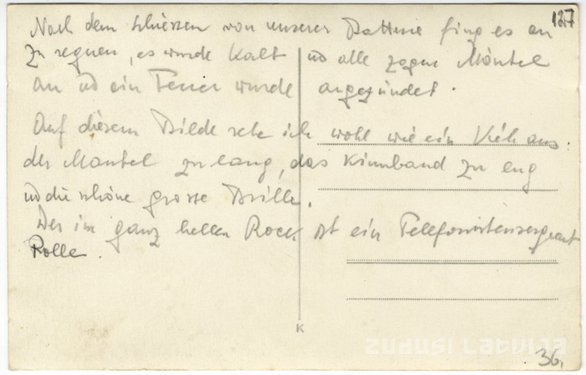 127
Nach dem schiessen von unserer Batterie fing es an
zu regnen, es wurde kalt ud alle zogen Mäntel
an ud ein Feuer wurde angezündet.
Auf diesem Bilde sehe ich wohl wie ein Vieh aus.
der Mantel zu lang, das Kinnband zu eng
ud die schöne grosse Brille.
Der im ganz hellen Rock ist ein Telefonistensergeant
Rolle.
K
zudusi Latvija
36.